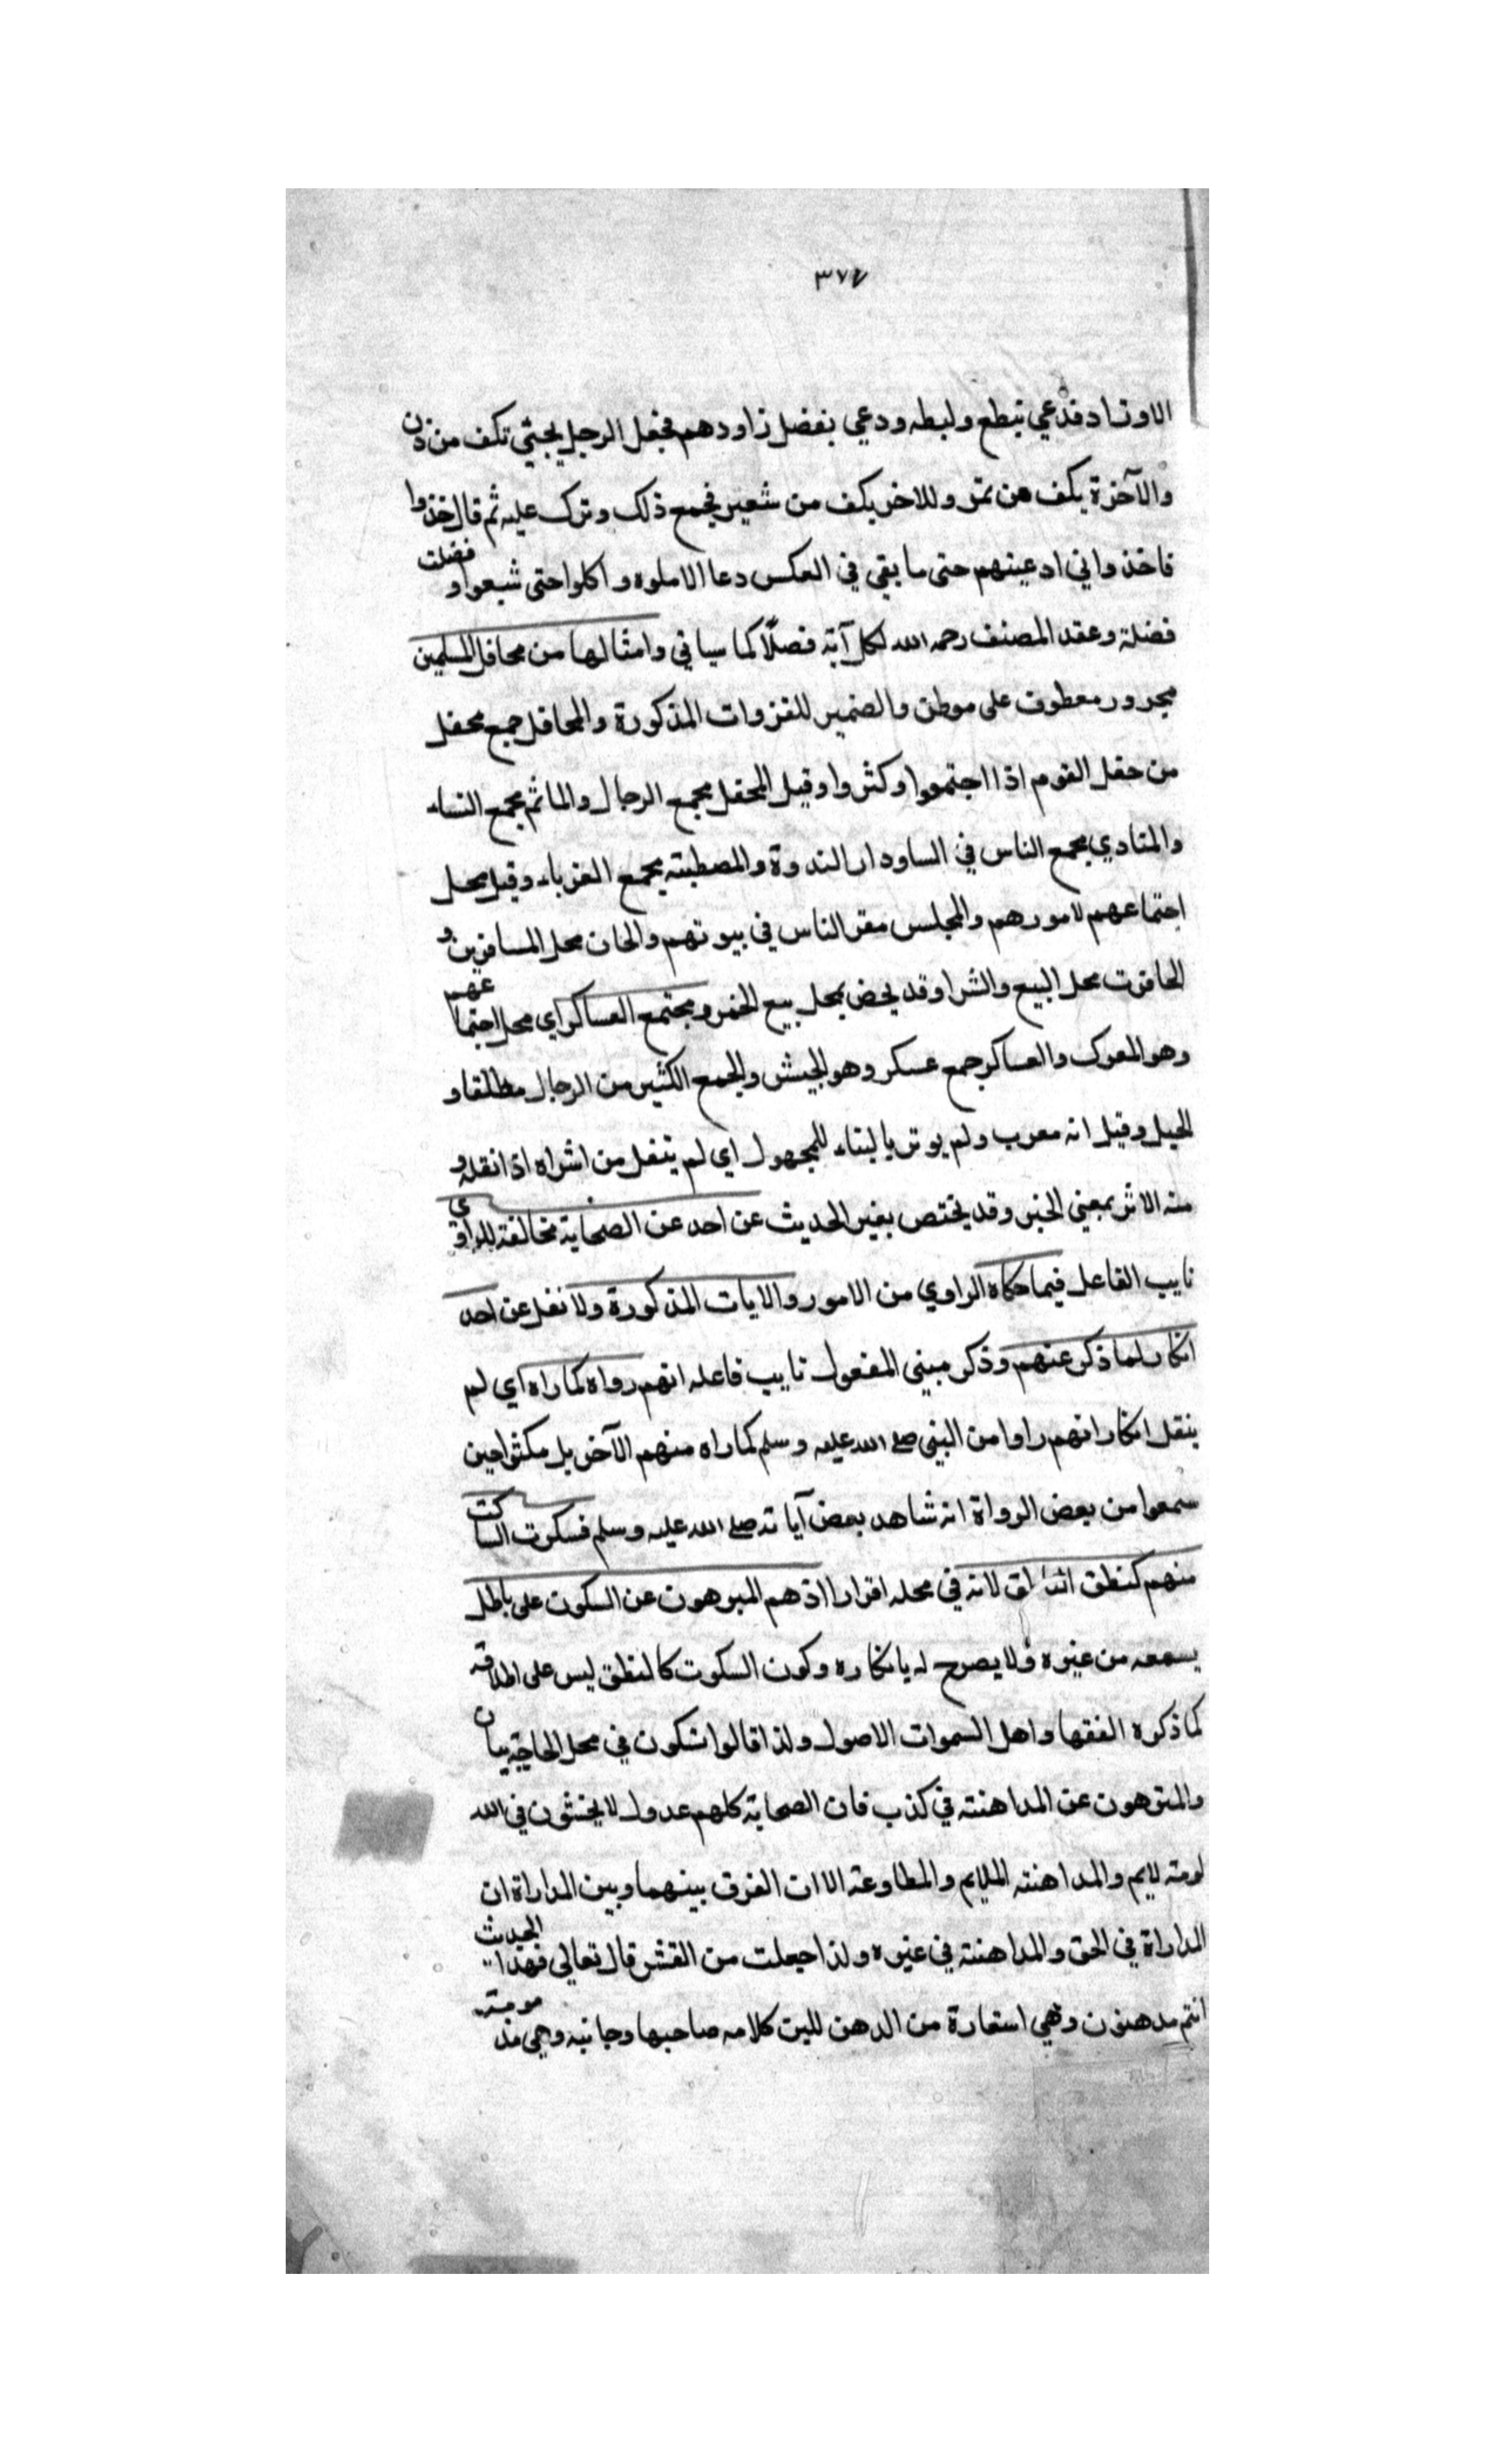 ٣٧٤
الاوتاد فدعي بنطع ولبطه ودعي بفضل زاودهم فجعل الرجل يجئي تكف من ذن
والآخرة بكف من تمر وللاخر بكف من شعير فجمع ذلك وترك عليه ثم قال خذوا
فاخذوا في ادعيتهم حتى ما بقي في العكس دعا الاملوه واكلوا حتى شبعوا و فضلت
فضلة وعقد المصنف رحمه الله لكل آية فصلًا كما سياتي وامثالها من محافل المسلمين
مجرور معطوف على موطن والضمير للغزوات المذكورة والمحافل جمع محفل
من حفل القوم اذا اجتمعوا وكثروا وقيل المحفل مجمع الرجال والماثم مجمع النساء
والمنادي مجمع الناس في السا ودار الندوة والمصطبته مجمع الغرباء وقيل محل
اجتماعهم لامورهم والمجلس مقر الناس في بيوتهم والخان محل المسافرين و
الحانوت محل البيع والشرا وقد يخص بمحل بيع الخمر ومجتمع العساكر اي محل اجتماعهم
وهو المعرك والعساكر جمع عسكر وهو الجيش والجمع الكثير من الرجال مطلقا و
الخيل وقيل انه معرب ولم يوثر بالبناء للمجهول اي لم ينقل من اشراه اذا نقله و
منه الاثر بمعني الخبر وقد يختص بغير الحديث عن احد عن الصحابة مخالفة للراوي
نايب الفاعل فيما حكاه الراوي من الامور والايات المذكورة ولا نقل عن احد
انكار لما ذكر عنهم وذكر مبني المفعول نايب فاعله انهم رواه كما راه اي لم
ينقل انكار انهم راوا من النبي صلى الله عليه وسلم كما راه منهم الآخر بل مكثوا حين
سمعوا من بعض الرواة انه شاهد بعض آياته صلى الله عليه وسلم فسكوت الساكت
منهم كنطق الناطق لانه في محله اقرارا اذ هم المبرهون عن السكون على باطل
يسمعه من غيره ولا يصرح له بانكاره وكون السكوت كالنطق ليس على اطلاقه
كما ذكره الفقها واهل السموات الاصول ولذا قالوا سكون في محل الحاجة بيان
والمنزهون عن المداهنته في كذب فان الصحابة كلهم عدول لا يخشون في الله
لومته لايم والمداهنته الملايم والمطاوعة الا ان الفرق بينهما وبين المداراة ان
المداراة في الحق والمداهنته في غيره ولذا جعلت من الغش قال تعالى فهذا الحديث
انتم مدهنون وهي استعارة من الدهن للين كلامه صاحبها وجانبه وهي مذمومته